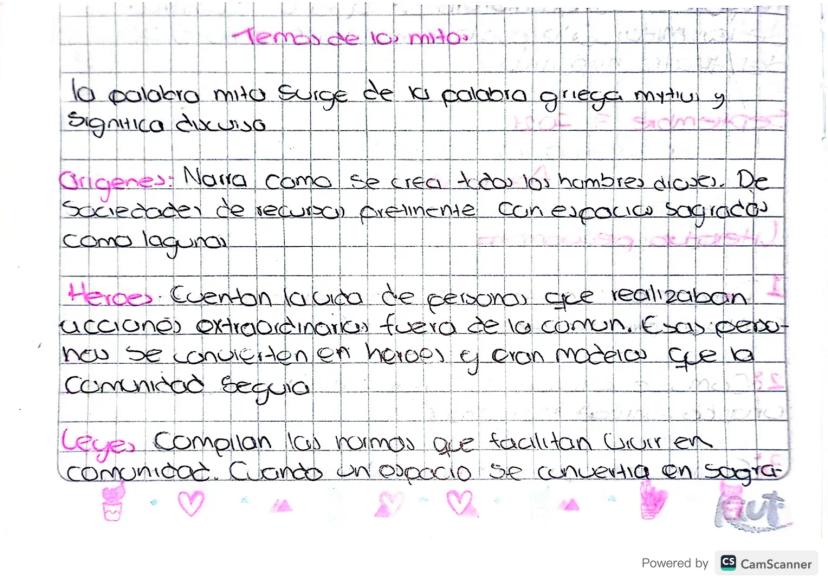 Temas de los mitos
la palabra mito surge de la palabra griega y
significa discurso
Origenes: Narra como se crea todos los hombres dioses. De
sociedades de recursos con espacios sagrados
como lagunas
Heroes. Cuentan la vida de personas que realizaban
acciones extraordinarias fuera de lo comun. Esas perso-
nas se convierten en heroes y eran modelos que la
comunidad seguia
Leyes Compilan las normas que facilitan vivir en
comunidad. Cuando un espacio se convertia en sagra-
Powered by CS CamScanner